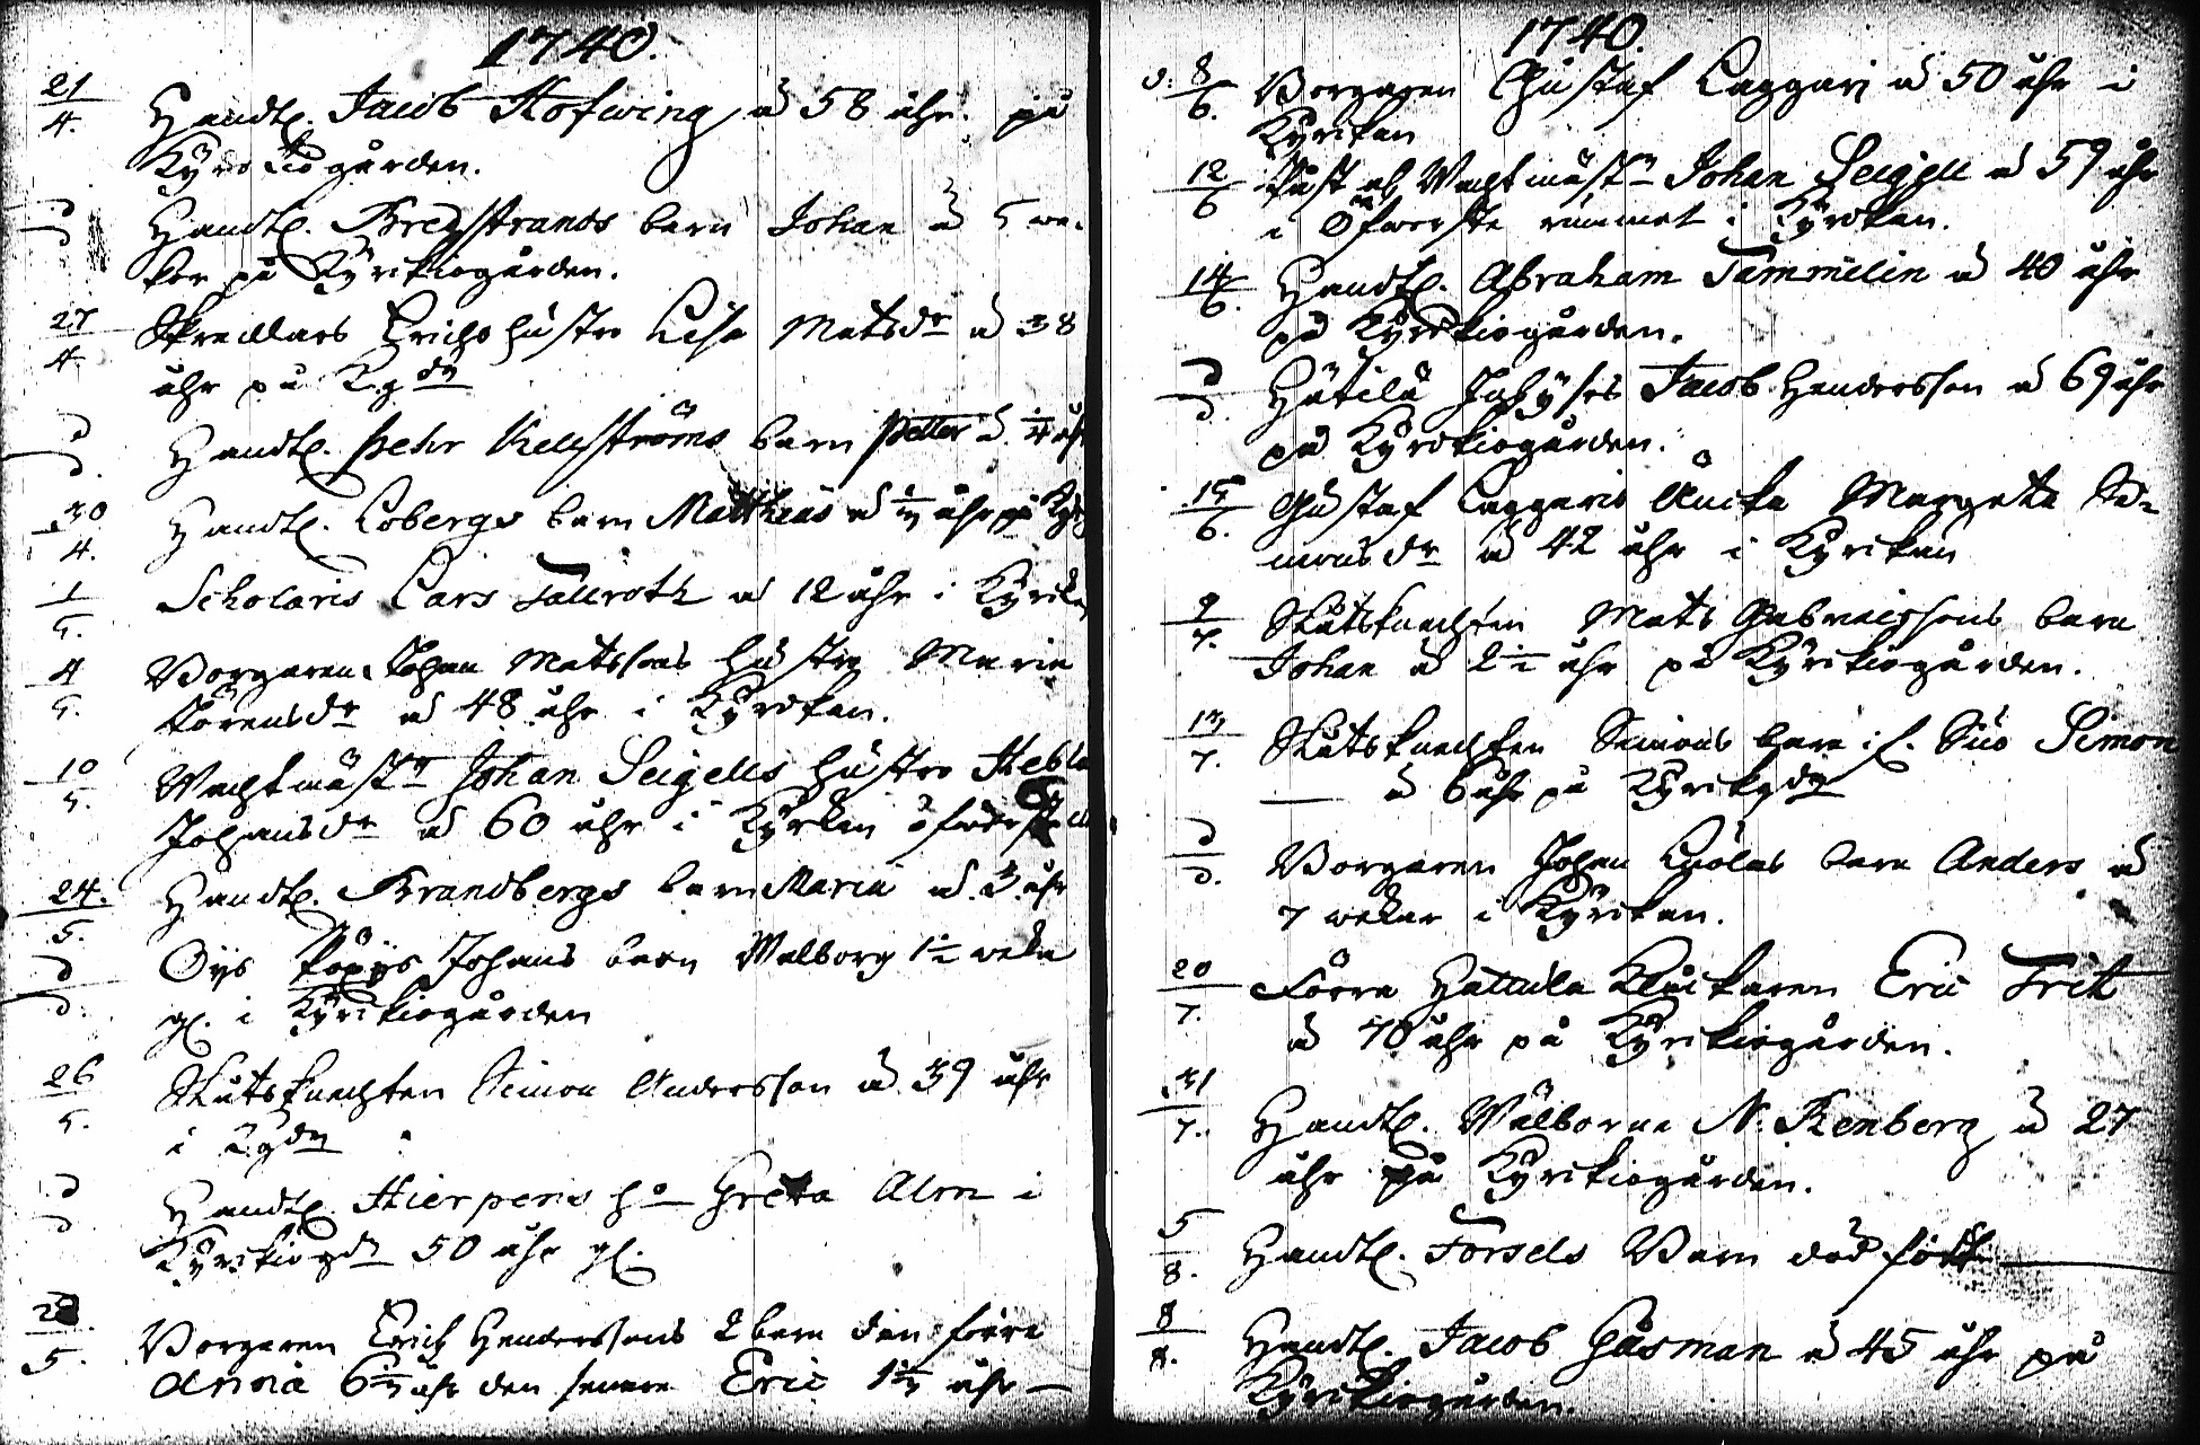 1740.
21/4. Handl. Jacob Hofwing å 58 åhr. på
Kyrckiogården.
d/d Handl. Bredstrands barn Johan å 5 we-
kor på Kyrckiogården.
27/4. Skreddars Erichs hustro Lisa Matsdr å 38
åhr på K.gdn
d/d. Handl. Pehr Kellströms barn Petter å 1/4 åhr
30/4. Handl. Lobergs barn Matthias å 1/2 åhr på
1/5. Scholaris Lars Tallroth å 12 åhr i Kyrckan
4/5. Borgaren Johan Matssons hustro Maria
Jörensdr å 48 åhr i Kyrckan.
10/5. Wachtmästn Johan Seigells hustro
Johansdr å 60 åhr i Kyrckan öfwerste
24./5. Handl. Brandbergs barn Maria å 3 åhr
d/d. Johans barn Walborg 1 1/2 weka
gl. i Kyrckiogården
26/5. Stutsknechten Simon Andersson å 39 åhr
i K.gdn
d/d Handl. Hierpens ho Greta Alm i
Kyrckiogdn 50 åhr gl.
28./5. Borgaren Erich Hendersons 2 barn den förra
Anna 6 1/2 åhr den senare Eric 1 1/2 åhr —
1740.
d: 8/6. Borgaren Gustaf Laggari å 50 åhr i
Kyrckan
12/6 Wachtmästn Johan Seigell å 59 åhr
i Öfwerste rummet i Kyrckan.
14/6. Handl. Abraham Tammelin å 40 åhr
på Kyrckiogården.
d/d. Jacob Hendersson å 69 åhr
på Kyrckiogården.
15/6. Gustaf Laggaris Änka Margeta Si-
monsdr å 42 åhr i Kyrckan
9/7. Stutsknechten Mats Gabrielssons barn
Johan å 2 1/2 åhr på Kyrckiogården.
13/7. Stutsknechten Simons barn Simon
— å 6 åhr på Kyrckgdn
d/d. Borgaren Johan barn Anders å
7 wekor i Kyrckan.
20/7. Förra Hattula Klåckaren Eric Frik
å 70 åhr på Kyrckiogården.
31/7. Handl. Wälborne N. Renberg å 27
åhr på Kyrckiogården.
5/8. Handl. Forsels Barn död född —
8/8. Handl. Jacob Gåsman å 45 åhr på
Kyrckiogården.